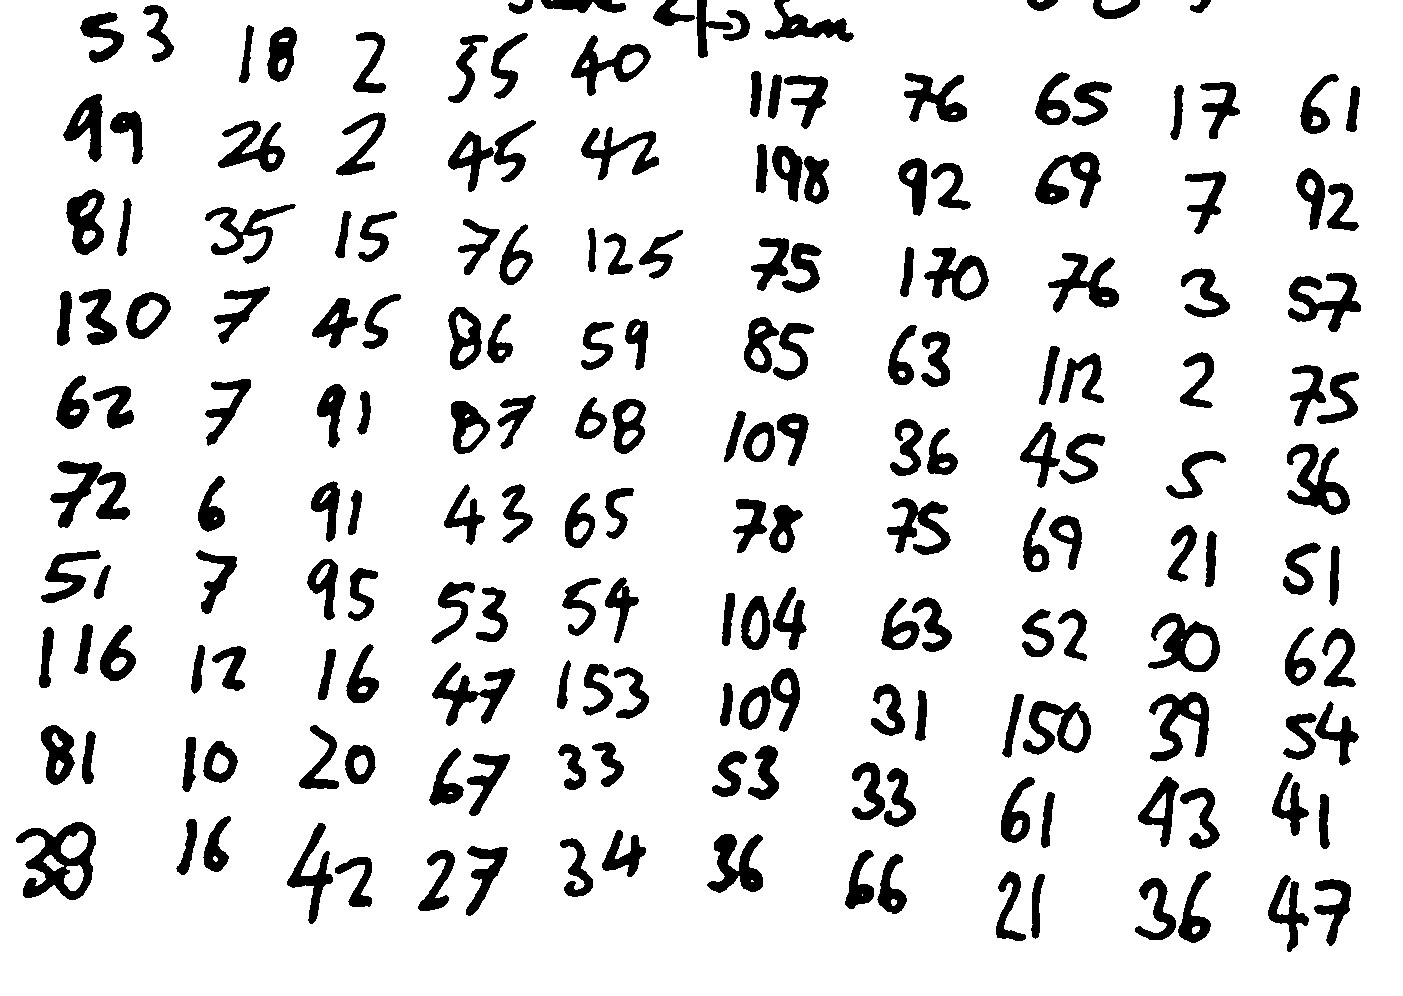 Sam
53 18 2 35 40 117 76 65 17 61
99 26 2 45 42 198 92 69 7 92
81 35 15 76 125 75 170 76 3 57
130 7 45 86 59 85 63 112 2 75
62 7 91 87 68 109 36 45 5 36
72 6 91 43 65 78 75 69 21 51
51 7 95 53 54 104 63 52 30 62
116 12 16 47 153 109 31 150 39 54
81 10 20 67 33 53 33 61 43 41
38 16 42 27 34 36 66 21 36 47